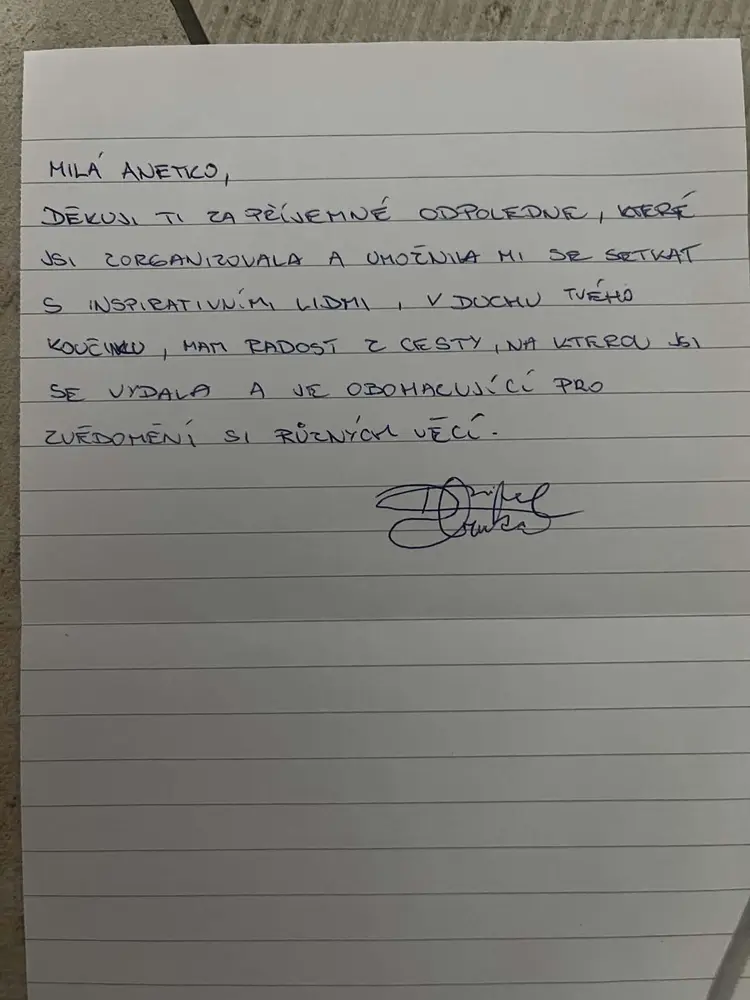 MILÁ ANETKO,
DĚKUJI TI ZA PŘÍJEMNÉ ODPOLEDNE, KTERÉ
JSI ZORGANIZOVALA A UMOŽNILA MI SE SETKAT
S INSPIRATIVNÍMI LIDMI, V DUCHU TVÉHO
KOUČINKU, MAM RADOST Z CESTY, NA KTEROU JSI
SE VYDALA A JE OBOHACUJÍCÍ PRO
ZVĚDOMĚNÍ SI RŮZNÝCH VĚCÍ.